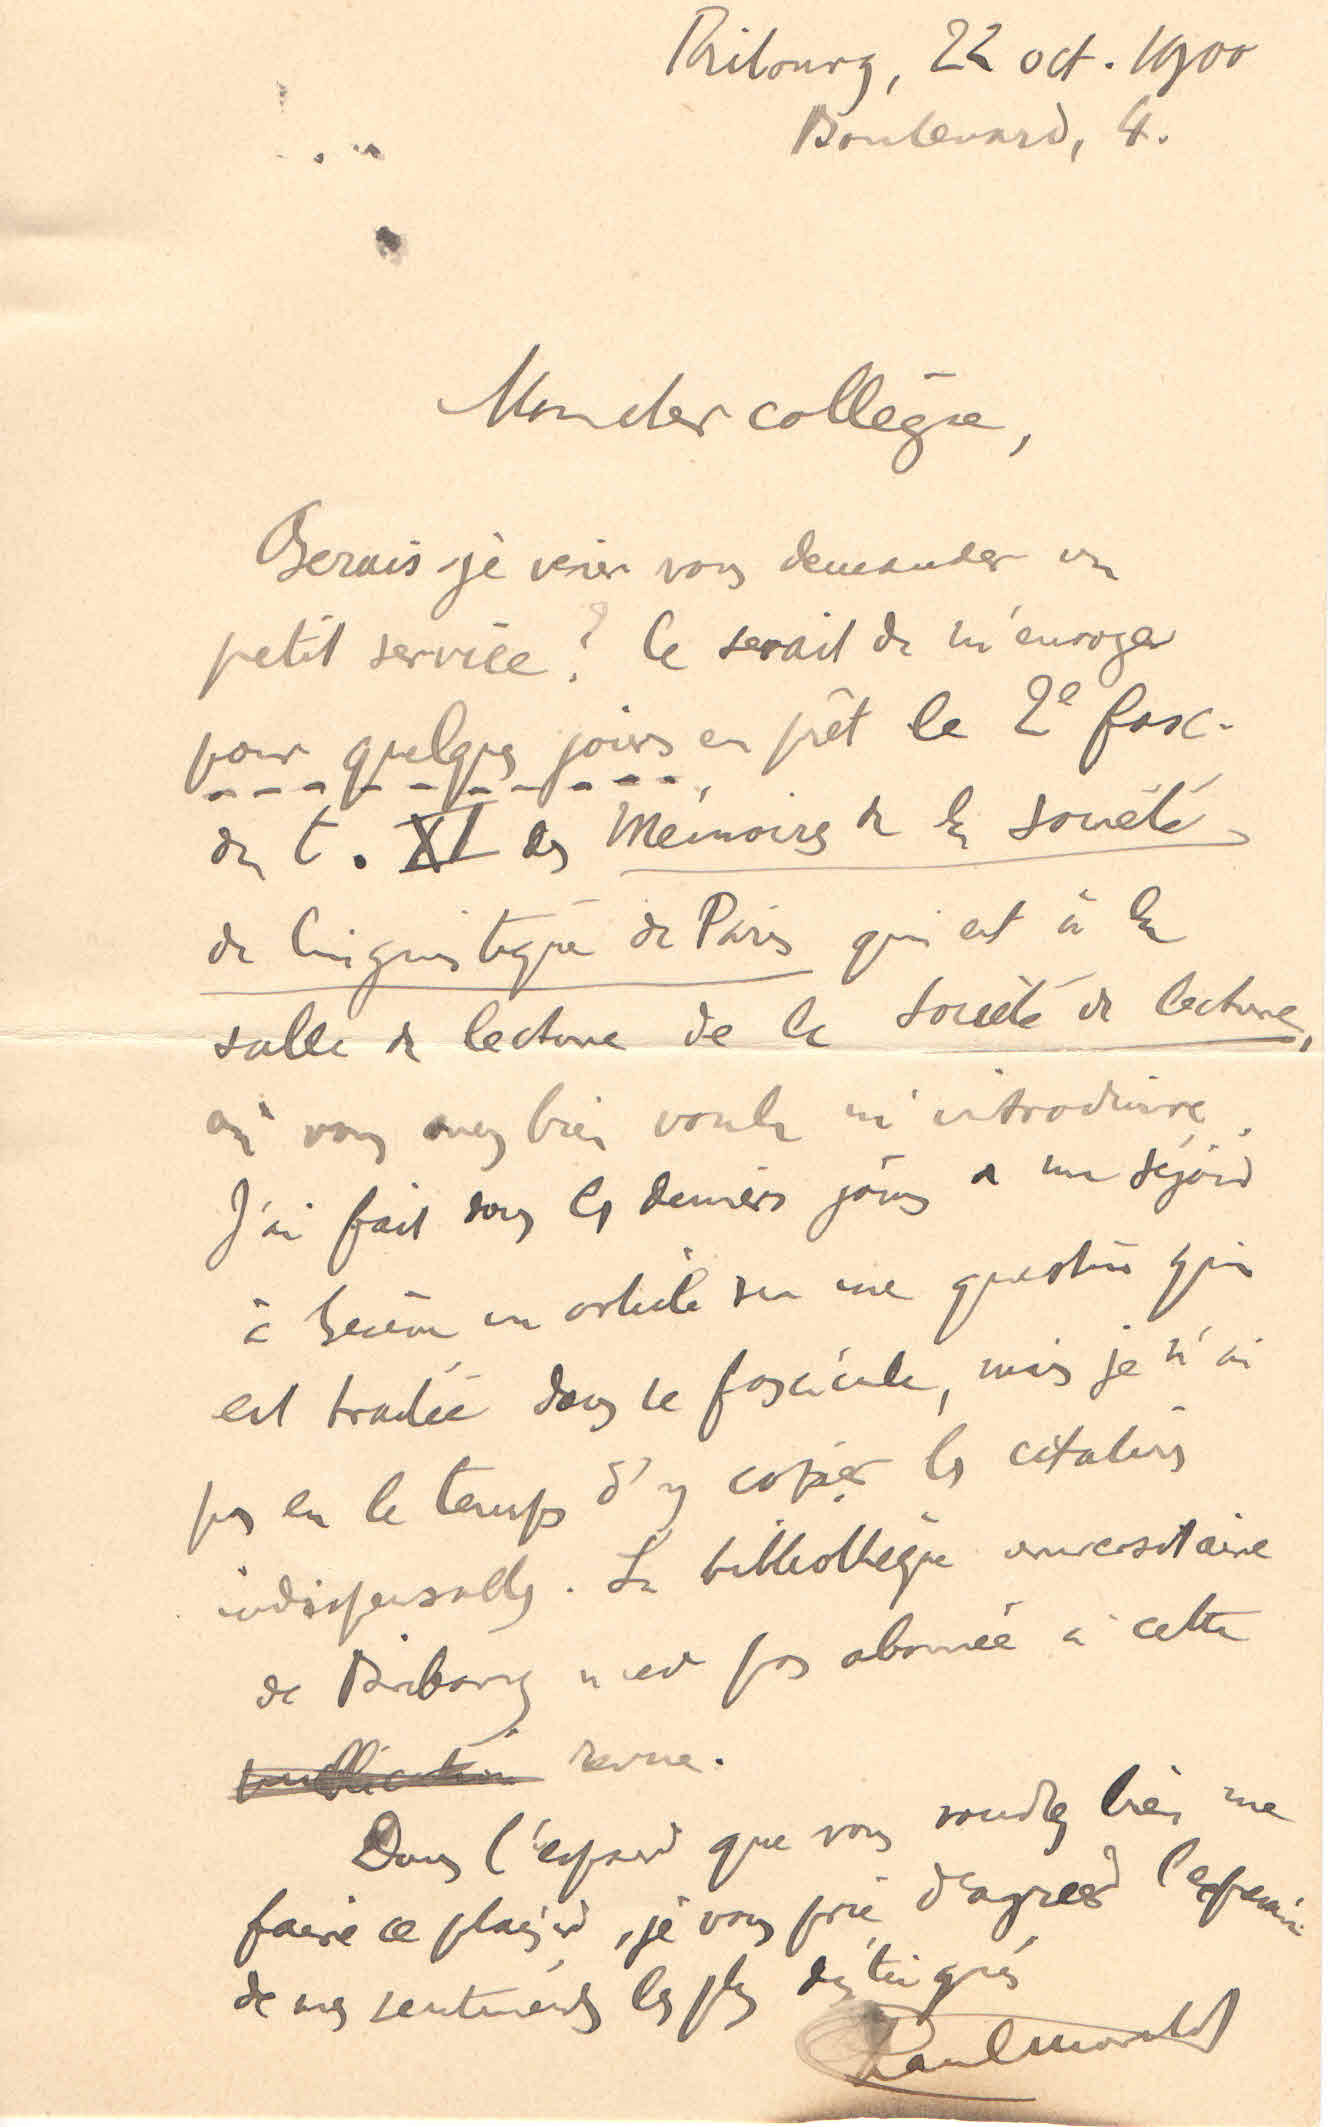 Fribourg, 22 oct. 1900
Boulevard, 4.
Mon cher collègue,
Oserais-je venir vous demander un
petit service? Ce serait de m'envoyer
pour quelques jours en prêt le 2e fasc.
du t. XI des Mémoires de la société
de linguistique de Paris qui est à la
salle de lecture de la Société de lecture,
où vous avez bien voulu m'introduire.
J'ai fait dans les derniers jours de mon séjour
à Genève un article sur une question qui
est traitée dans ce fascicule, mais je n'ai
pas eu le temps d'y copier les citations
indispensables. La bibliothèque universitaire
de Fribourg n'est pas abonnée à cette
publication revue.
Dans l'espoir que vous voudrez bien me
faire ce plaisir, je vous prie d'agréer l'expression
de mes sentiments les plus distingués
Paul